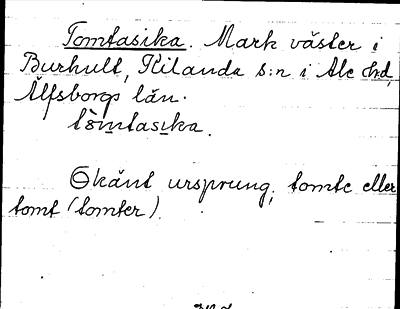 Tomtasika. Mark väster i
Burhult, Kilanda s:n i Ale hd,
Älfsborgs län.
tòmtasika.
Okänt ursprung; tomte eller
tomt (tomter).